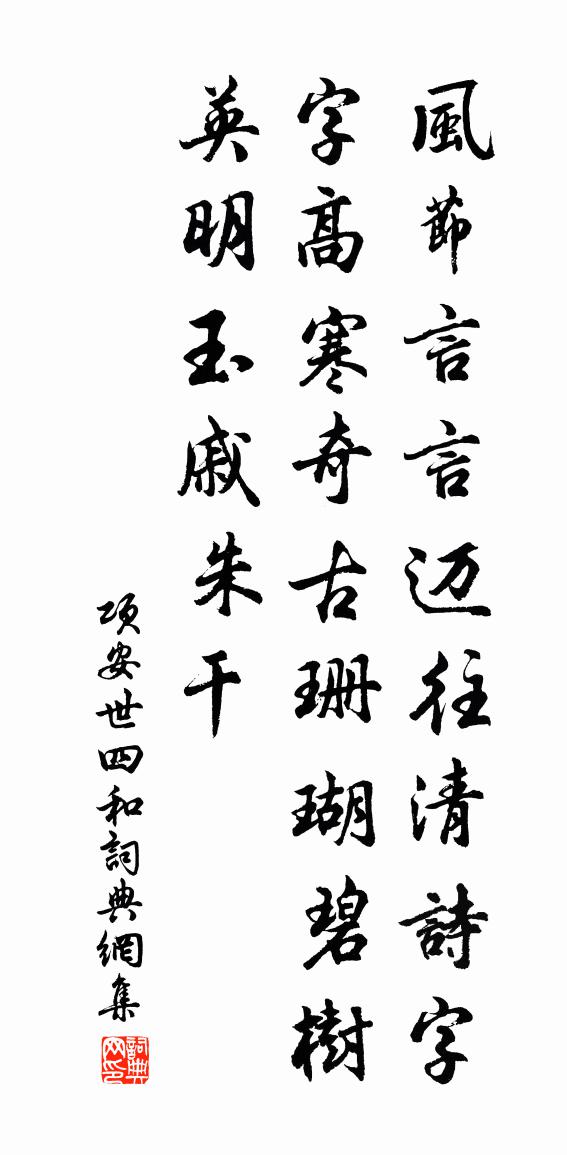 風節言言迈往清詩字
字高寒奇古珊瑚碧樹
英明玉戚朱干
项安世四和詞典網集
詞典网印